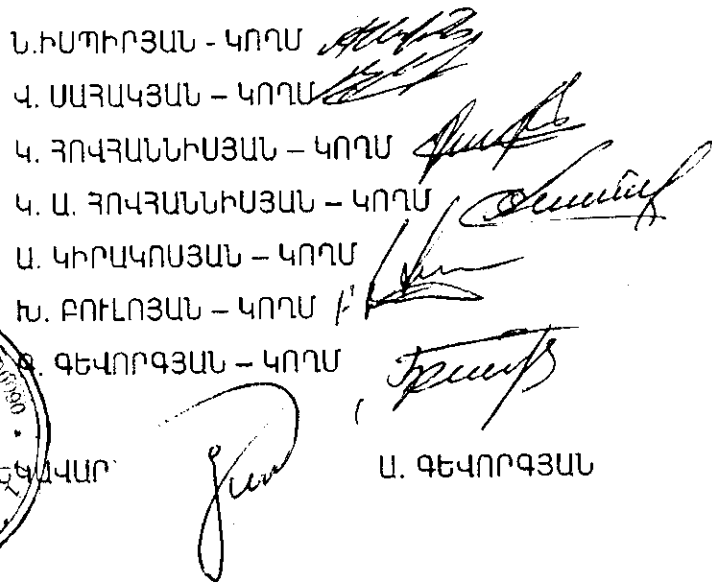 Ն.ԻՍՊԻՐՅԱՆ - ԿՈՂՄ
Վ. ՍԱՀԱԿՅԱՆ – ԿՈՂՄ
Կ. ՀՈՎՀԱՆՆԻՍՅԱՆ – ԿՈՂՄ
Կ. Ա. ՀՈՎՀԱՆՆԻՍՅԱՆ – ԿՈՂՄ
Ա. ԿԻՐԱԿՈՍՅԱՆ – ԿՈՂՄ
Խ. ԲՈՒԼՈՅԱՆ – ԿՈՂՄ
ԳԵՎՈՐԳՅԱՆ – ԿՈՂՄ
ԵԿԱՎԱՐ Ա. ԳԵՎՈՐԳՅԱՆ